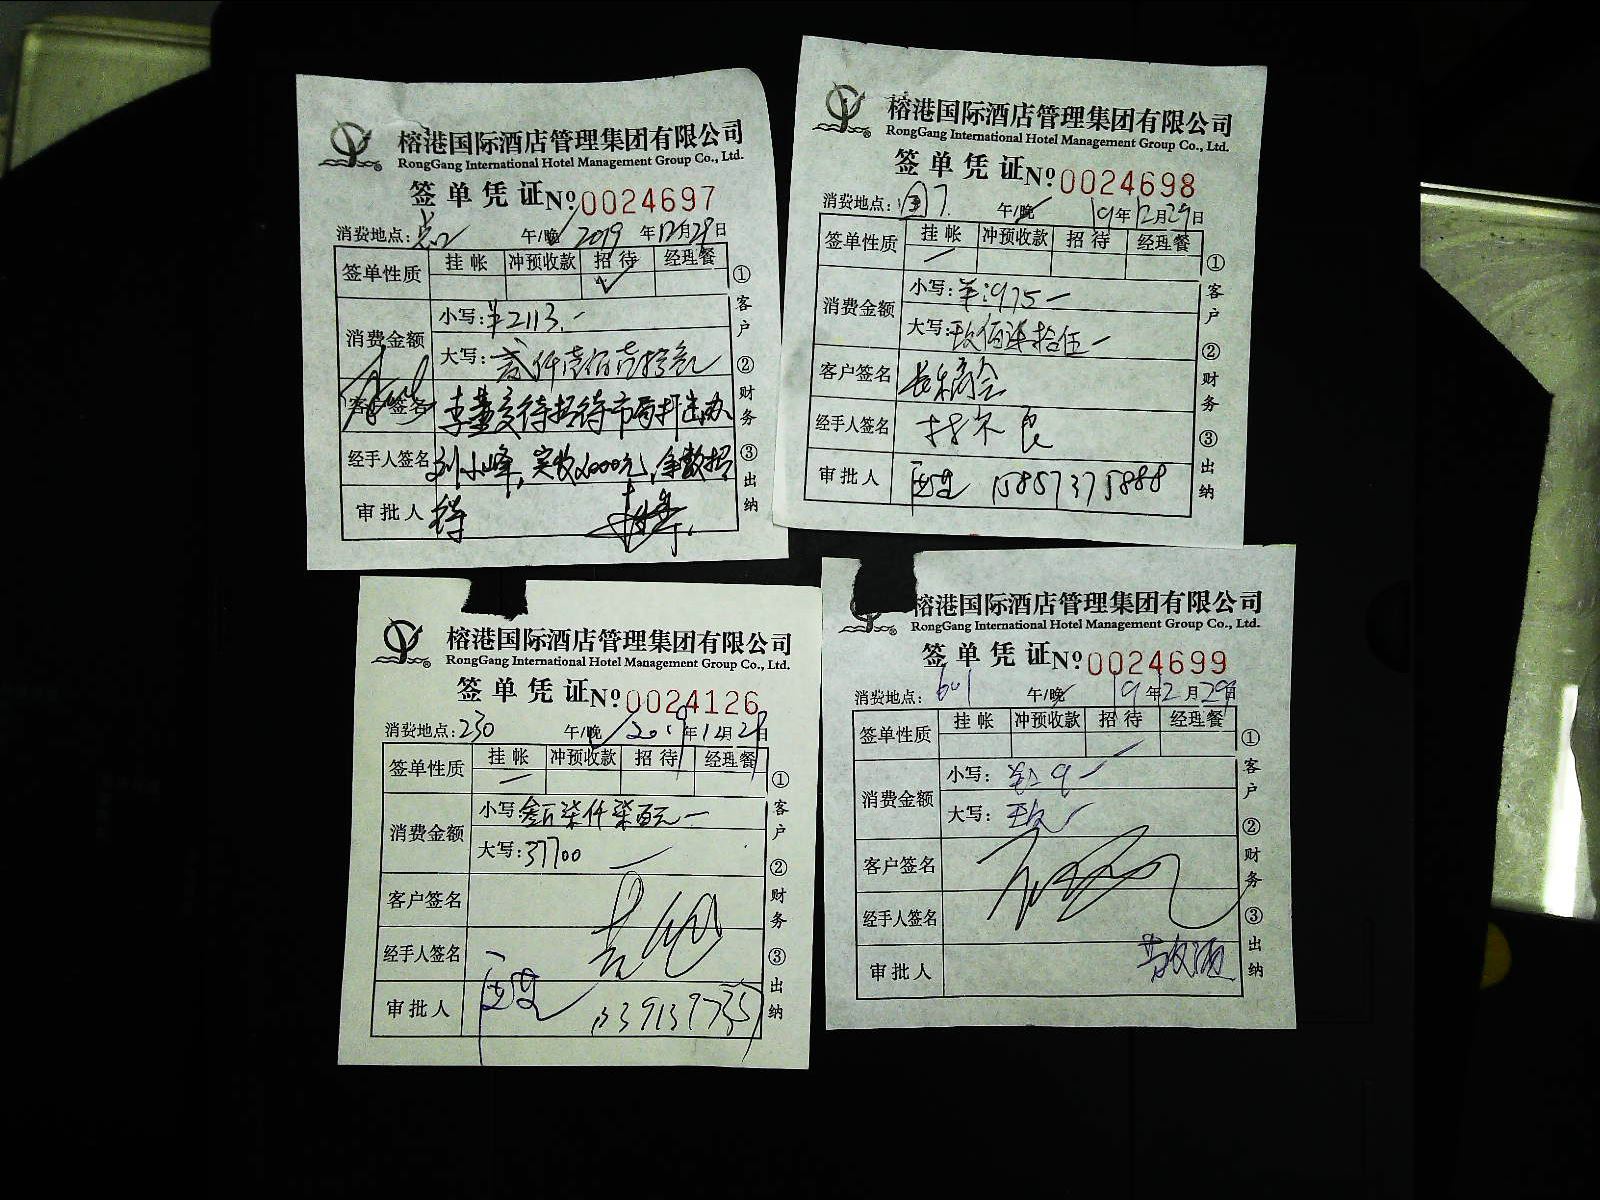 榕港国际酒店管理集团有限公司
RongGang International Hotel Management Group Co., Ltd.
签单凭证 №0024697
消费地点: 午/晚 2019年12月28日
签单性质 挂帐 冲预收款 招待 经理餐
✓
消费金额
小写:¥2113.-
大写:贰仟壹佰壹拾叁元
客户签名 李董交待招待市局打击办
经手人签名 刘小峰,实收2000元,余数招
审批人 待
①客户 ②财务 ③出纳
榕港国际酒店管理集团有限公司
RongGang International Hotel Management Group Co., Ltd.
签单凭证 №0024698
消费地点: 午/晚 19年12月29日
签单性质 挂帐 冲预收款 招待 经理餐
消费金额
小写:¥:975-
大写:玖佰柒拾伍-
客户签名 长乐商会
经手人签名
审批人 15857375888
①客户 ②财务 ③出纳
榕港国际酒店管理集团有限公司
RongGang International Hotel Management Group Co., Ltd.
签单凭证 №0024126
消费地点:230 午/晚 2019年12月28日
签单性质 挂帐 冲预收款 招待 经理餐
消费金额
小写:叁万柒仟柒百元-
大写:37700
客户签名
经手人签名
审批人
①客户 ②财务 ③出纳
榕港国际酒店管理集团有限公司
RongGang International Hotel Management Group Co., Ltd.
签单凭证 №0024699
消费地点:601 午/晚 19年12月29日
签单性质 挂帐 冲预收款 招待 经理餐
消费金额
小写:
大写:
客户签名
经手人签名
审批人
①客户 ②财务 ③出纳